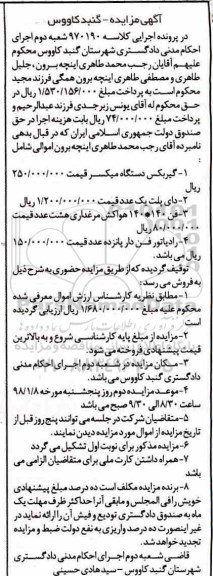 آگهی مزایده - گنبدکاووس
در پرونده اجرایی کلاسه ۹۷۰۱۹۰ شعبه دوم اجرای
احکام مدنی دادگستری شهرستان گنبد کاووس محکوم
علیهم آقایان رجب محمد طاهری اینچه برون، جلیل
طاهری و مصطفی طاهری اینچه برون همگی فرزند مجید
محکوم است به پرداخت مبلغ ۱/۵۳۰/۱۵۶/۰۰۰ ریال در
حق محکوم له آقای یونس زبرجدی فرزند عبدالرحیم و
پرداخت مبلغ ۷۴/۰۰۰/۰۰۰ ریال بابت هزینه اجرا در حق
صندوق دولت جمهوری اسلامی ایران که در قبال بدهی
نامبرده آقای رجب محمد طاهری اینچه برون اموالی شامل
:
۱- گیربکس دستگاه میکسر قیمت ۲۵۰/۰۰۰/۰۰۰
ریال
۲- دای پلت یک عدد قیمت ۱/۲۰۰/۰۰۰/۰۰۰ ریال
۳- فن ۱۴۰*۱۴۰ هواکش مرغداری هشت عدد قیمت
۸۰/۰۰۰/۰۰۰ ریال
۴- رادیاتور فن دار پانزده عدد قیمت ۱۵۰/۰۰۰/۰۰۰
ریال می باشد.
توقیف گردیده که از طریق مزایده حضوری به شرح ذیل
به فروش می رسد:
۱- مطابق نظریه کارشناسی ارزش اموال معرفی شده
محکوم علیه مبلغ ۱/۶۸۰/۰۰۰/۰۰۰ ریال ارزیابی گردیده
است
۲- مزایده از مبلغ پایه کارشناسی شروع و به بالاترین
قیمت پیشنهادی فروخته می شود.
۳- مکان مزایده در شعبه دوم اجرای احکام مدنی
دادگستری گنبد کاووس می باشد.
۴- موعد مزایده دوم روز پنجشنبه مورخه ۹۸/۱/۸
ساعت ۸/۳۰ الی ۹/۳۰ صبح می باشد
۵- متقاضیان شرکت در جلسه می توانند پنج روز قبل از
تاریخ مزایده از اموال مورد مزایده دیدن نمایند.
۶- مزایده مذکور برای نوبت اول تشکیل می گردد
۷- همراه داشتن کارت ملی برای متقاضیان الزامی می
باشد
۸- برنده مزایده مکلف است ده درصد مبلغ پیشنهادی
خویش را فی المجلس و مابقی آنرا حداکثر ظرف مهلت یک
ماه به صندوق دادگستری تودیع و فیش آن را ارائه نماید در
غیر اینصورت ده درصد واریزی به نفع دولت ضبط و مزایده
تجدید خواهد شد.
قاضی شعبه دوم اجرای احکام مدنی دادگستری
شهرستان گنبد کاووس - سیدهادی حسینی